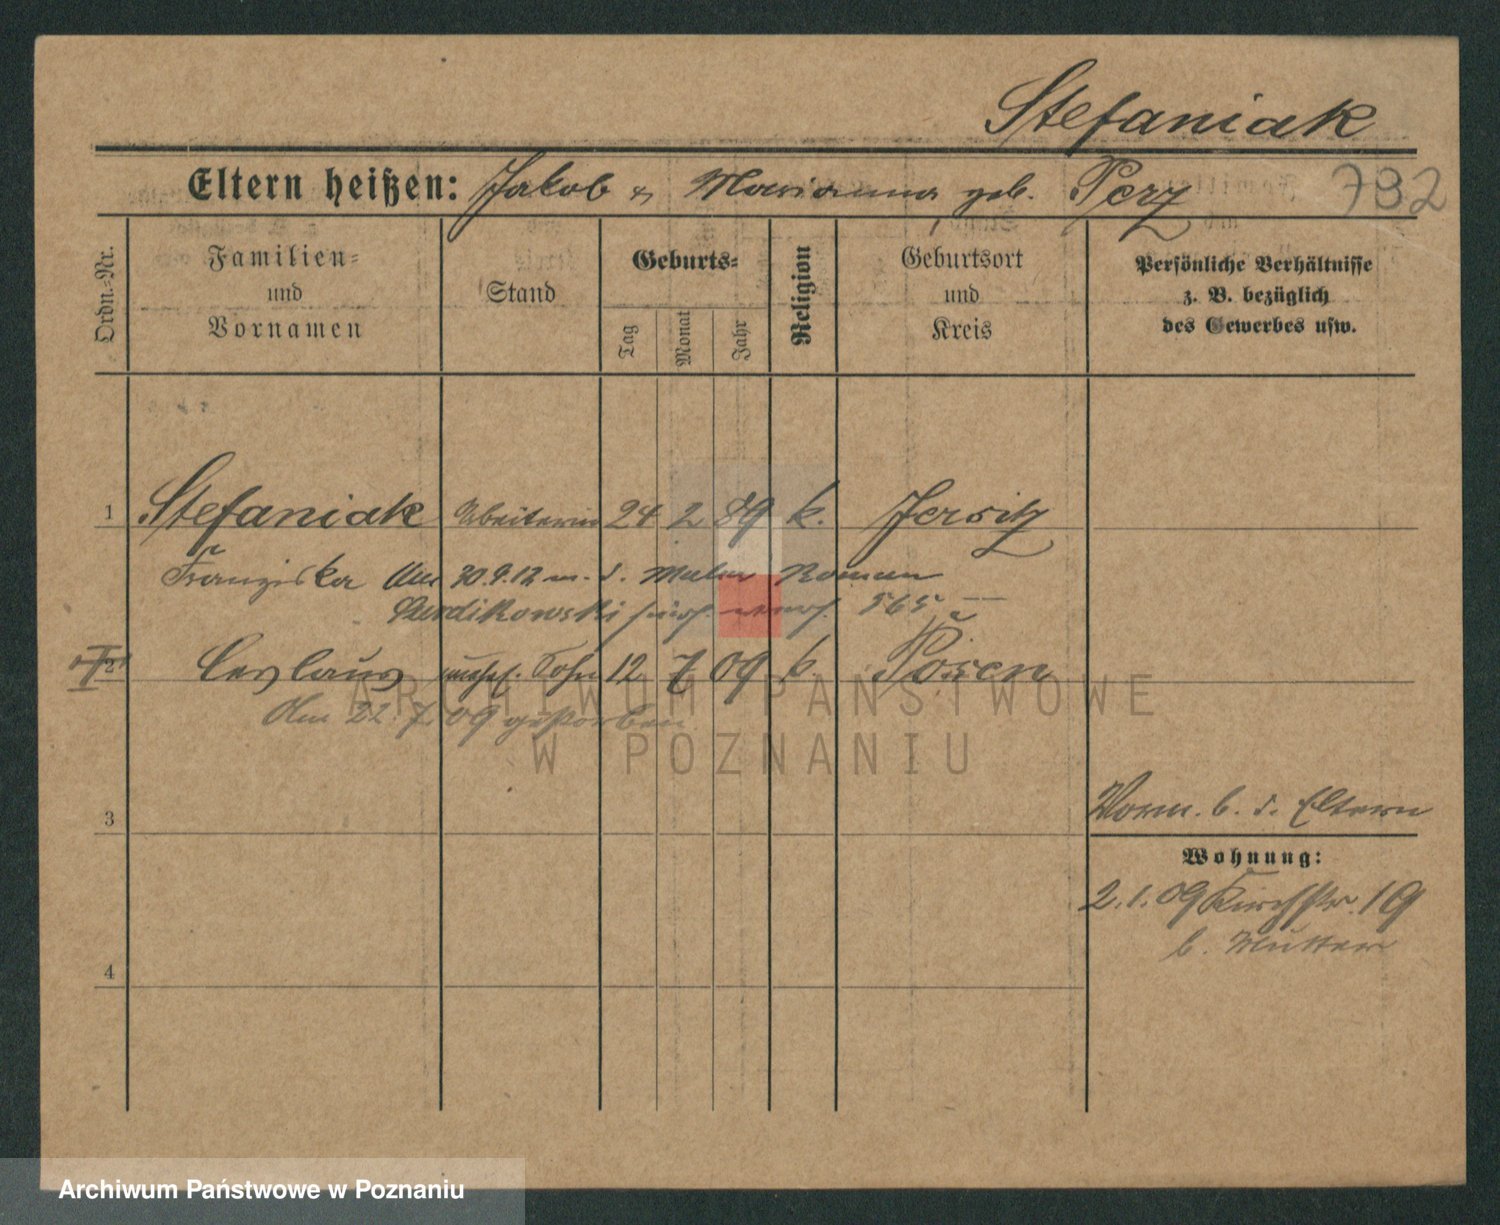 Stefaniak
Eltern heißen: Jakob & Marianna geb. Perz 732
Ordn.-Nr.
Familien-
und
Vornamen
Stand
Geburts-
Tag
Monat
Jahr
Religion
Geburtsort
und
Kreis
Persönliche Verhältnisse
z. B. bezüglich
des Gewerbes usw.
1 Stefaniak Arbeiterin 24 2 89 k. Jersitz
Franziska Am 30.9.12 m. d. Maler Roman
565
2 Ceslaus unehel. Sohn 12 7 09 k. Posen
Am 22.7.09 gestorben
ARCHIWUM PAŃSTWOWE
W POZNANIU
3
Vorm. b. d. Eltern
Wohnung:
2.1.09 Kirchstr. 19
b. Mutter
4
Archiwum Państwowe w Poznaniu